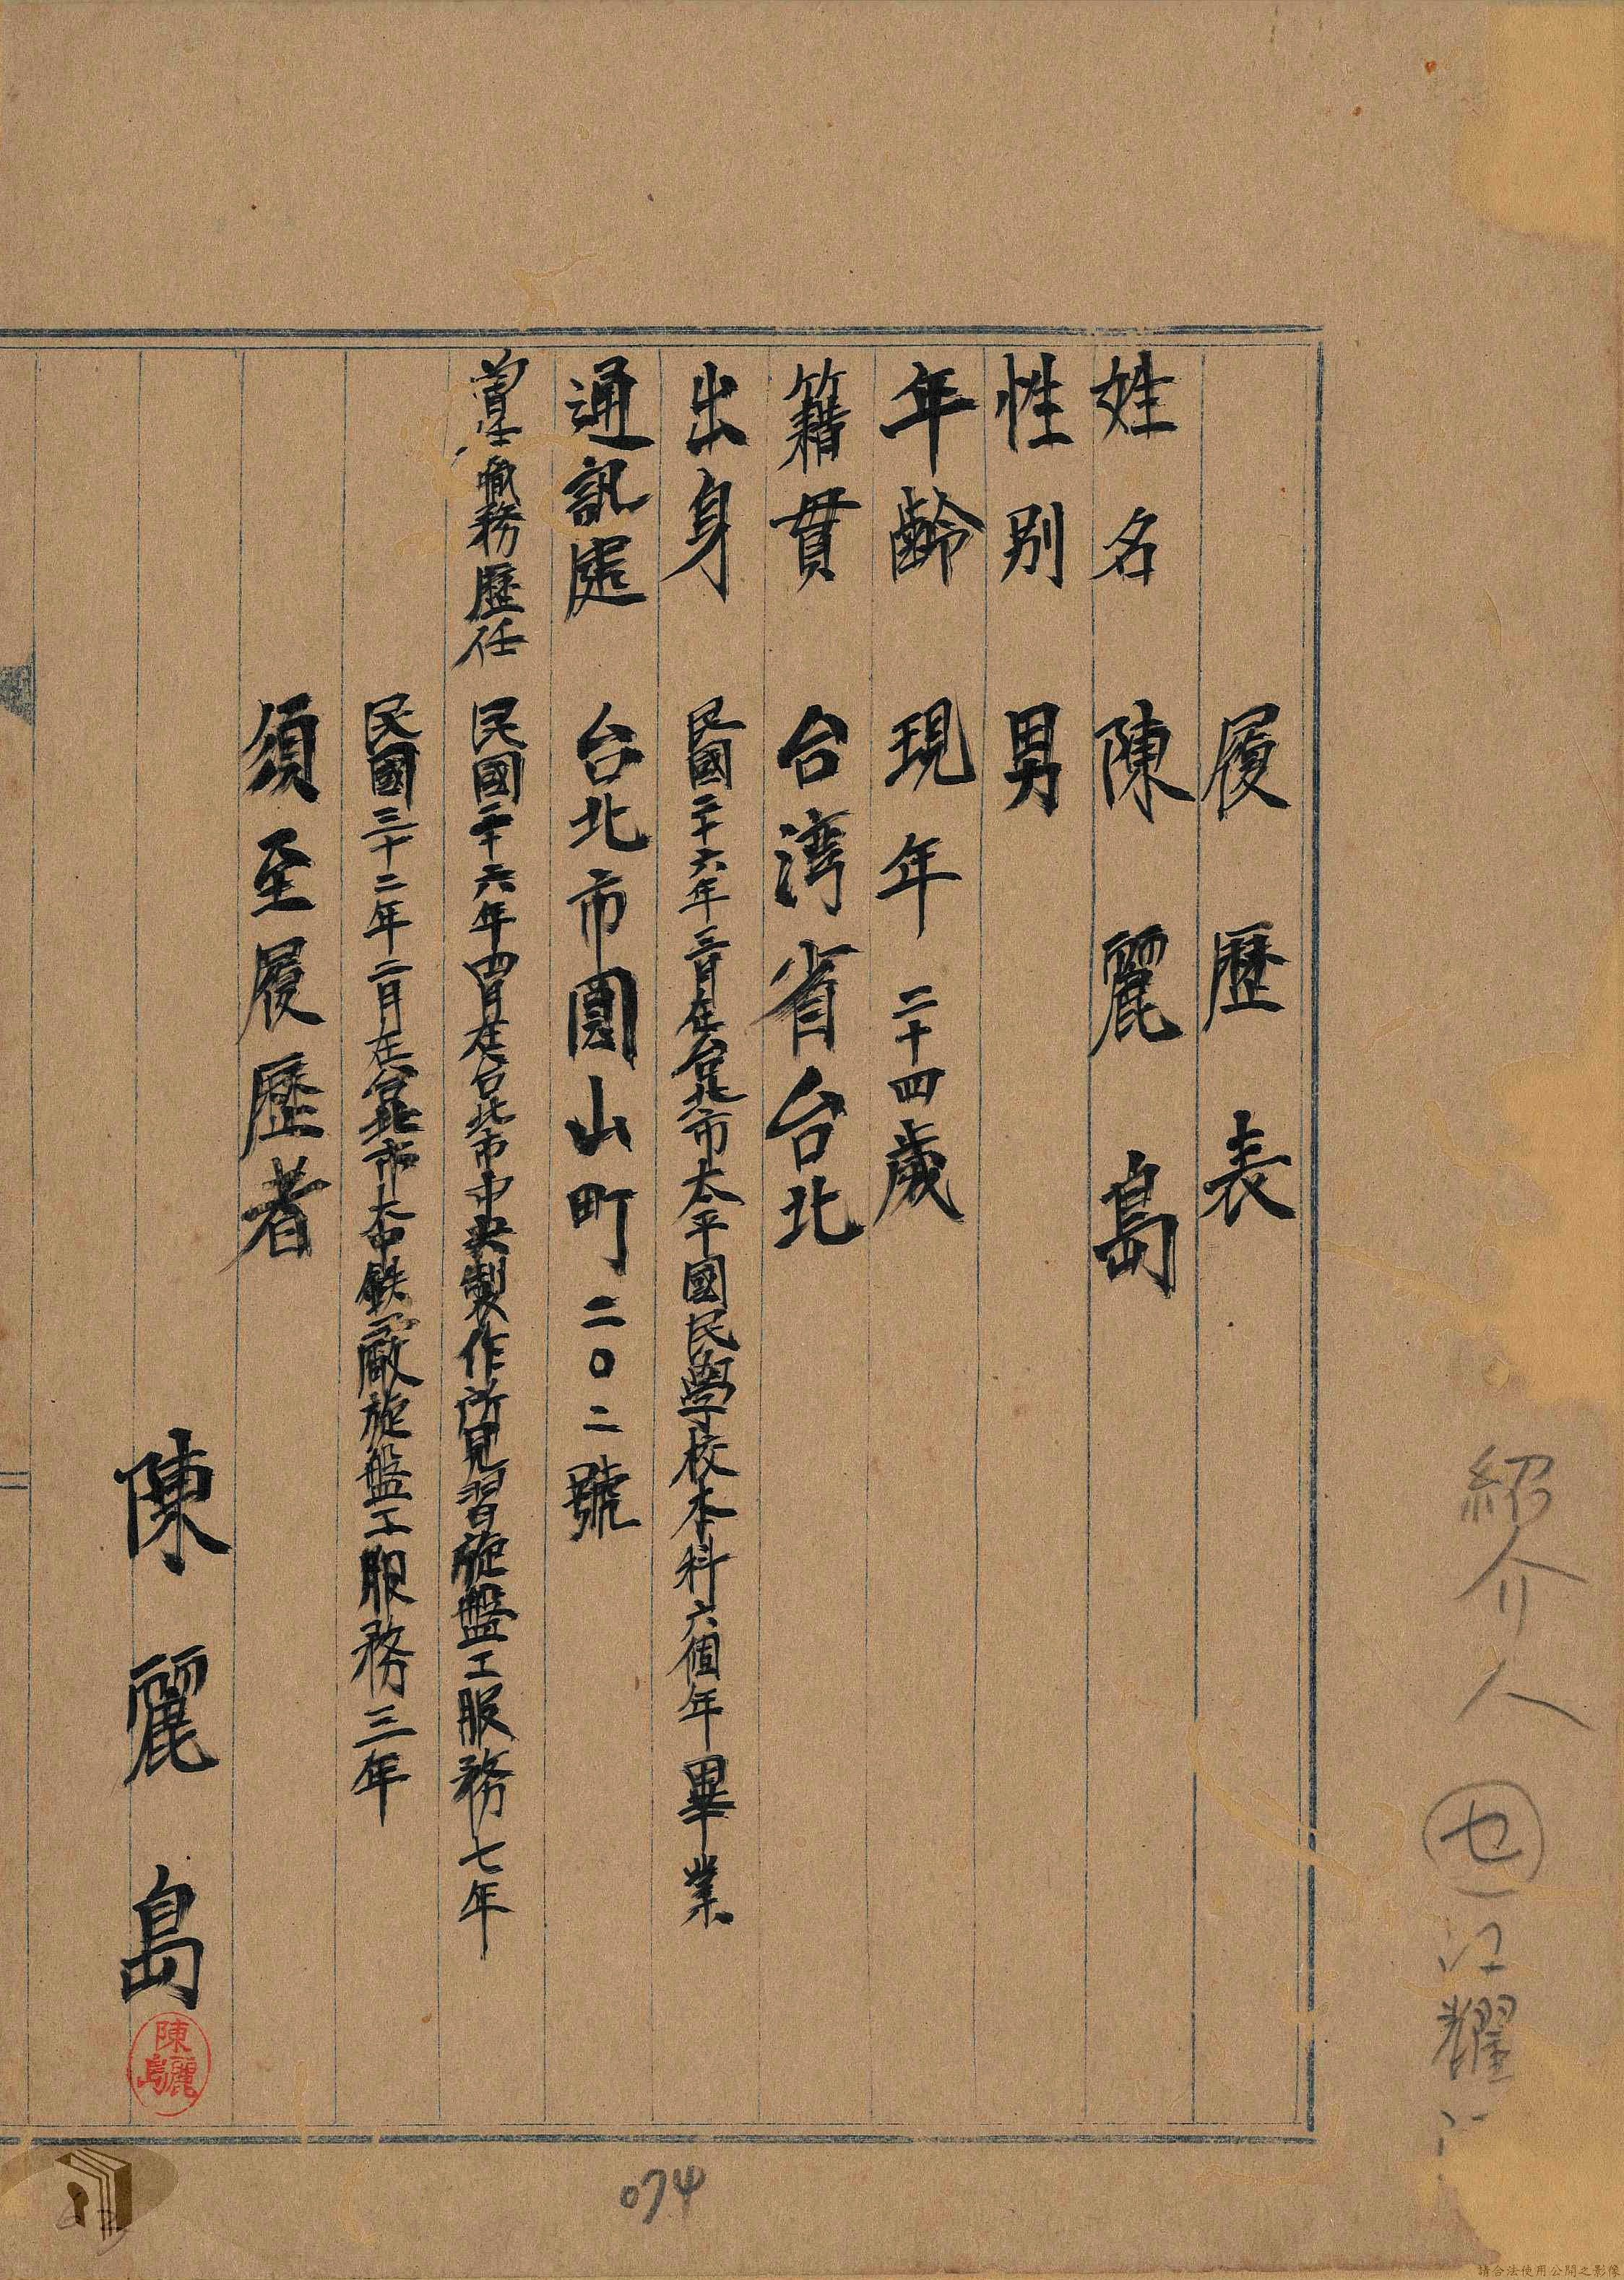 履歷表
姓名 陳麗島
性別 男
年齡 現年二十四歲
籍貫 台湾省台北
出身 民國二十六年三月在台北市太平國民學校本科六個年畢業
通訊處 台北市圓山町二〇二號
曾任職務歷任 民國二十六年四月在台北市中央製作所見習旋盤工服務七年
民國三十二年二月在台北市大中鉄廠旋盤工服務三年
須至履歷者
陳麗島
陳麗島
紹介人
江耀
074
請合法使用公開之影像